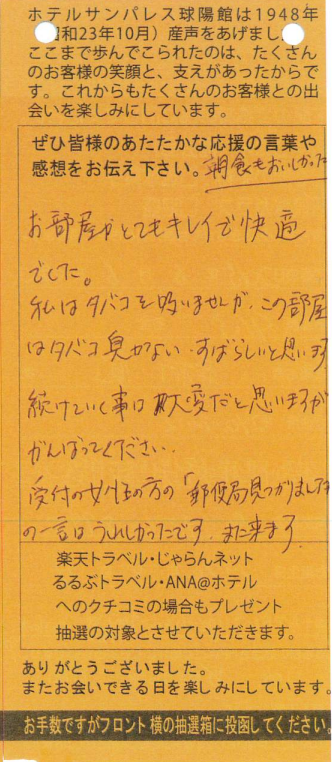 ホテルサンパレス球陽館は1948年
和23年10月）産声をあげまし
ここまで歩んでこられたのは、たくさん
のお客様の笑顔と、支えがあったからで
す。これからもたくさんのお客様との出
会いを楽しみにしています。
ぜひ皆様のあたたかな応援の言葉や
感想をお伝え下さい。朝食もおいしかった
お部屋がとてもキレイで快適
でした。
私はタバコを吸いませんが、この部屋
はタバコ臭がない、すばらしいと思います
続けていく事は大変だと思いますが
がんばってください。
受付の女性の方の「郵便局見つかりました
の一言はうれしかったです。また来ます
楽天トラベル・じゃらんネット
るるぶトラベル・ANA@ホテル
へのクチコミの場合もプレゼント
抽選の対象とさせていただきます。
ありがとうございました。
またお会いできる日を楽しみにしています。
お手数ですがフロント横の抽選箱に投函してください。